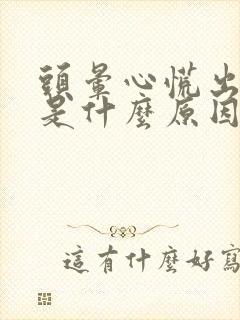 頭暈心慌出
是什麼原因
這有什麼好寫